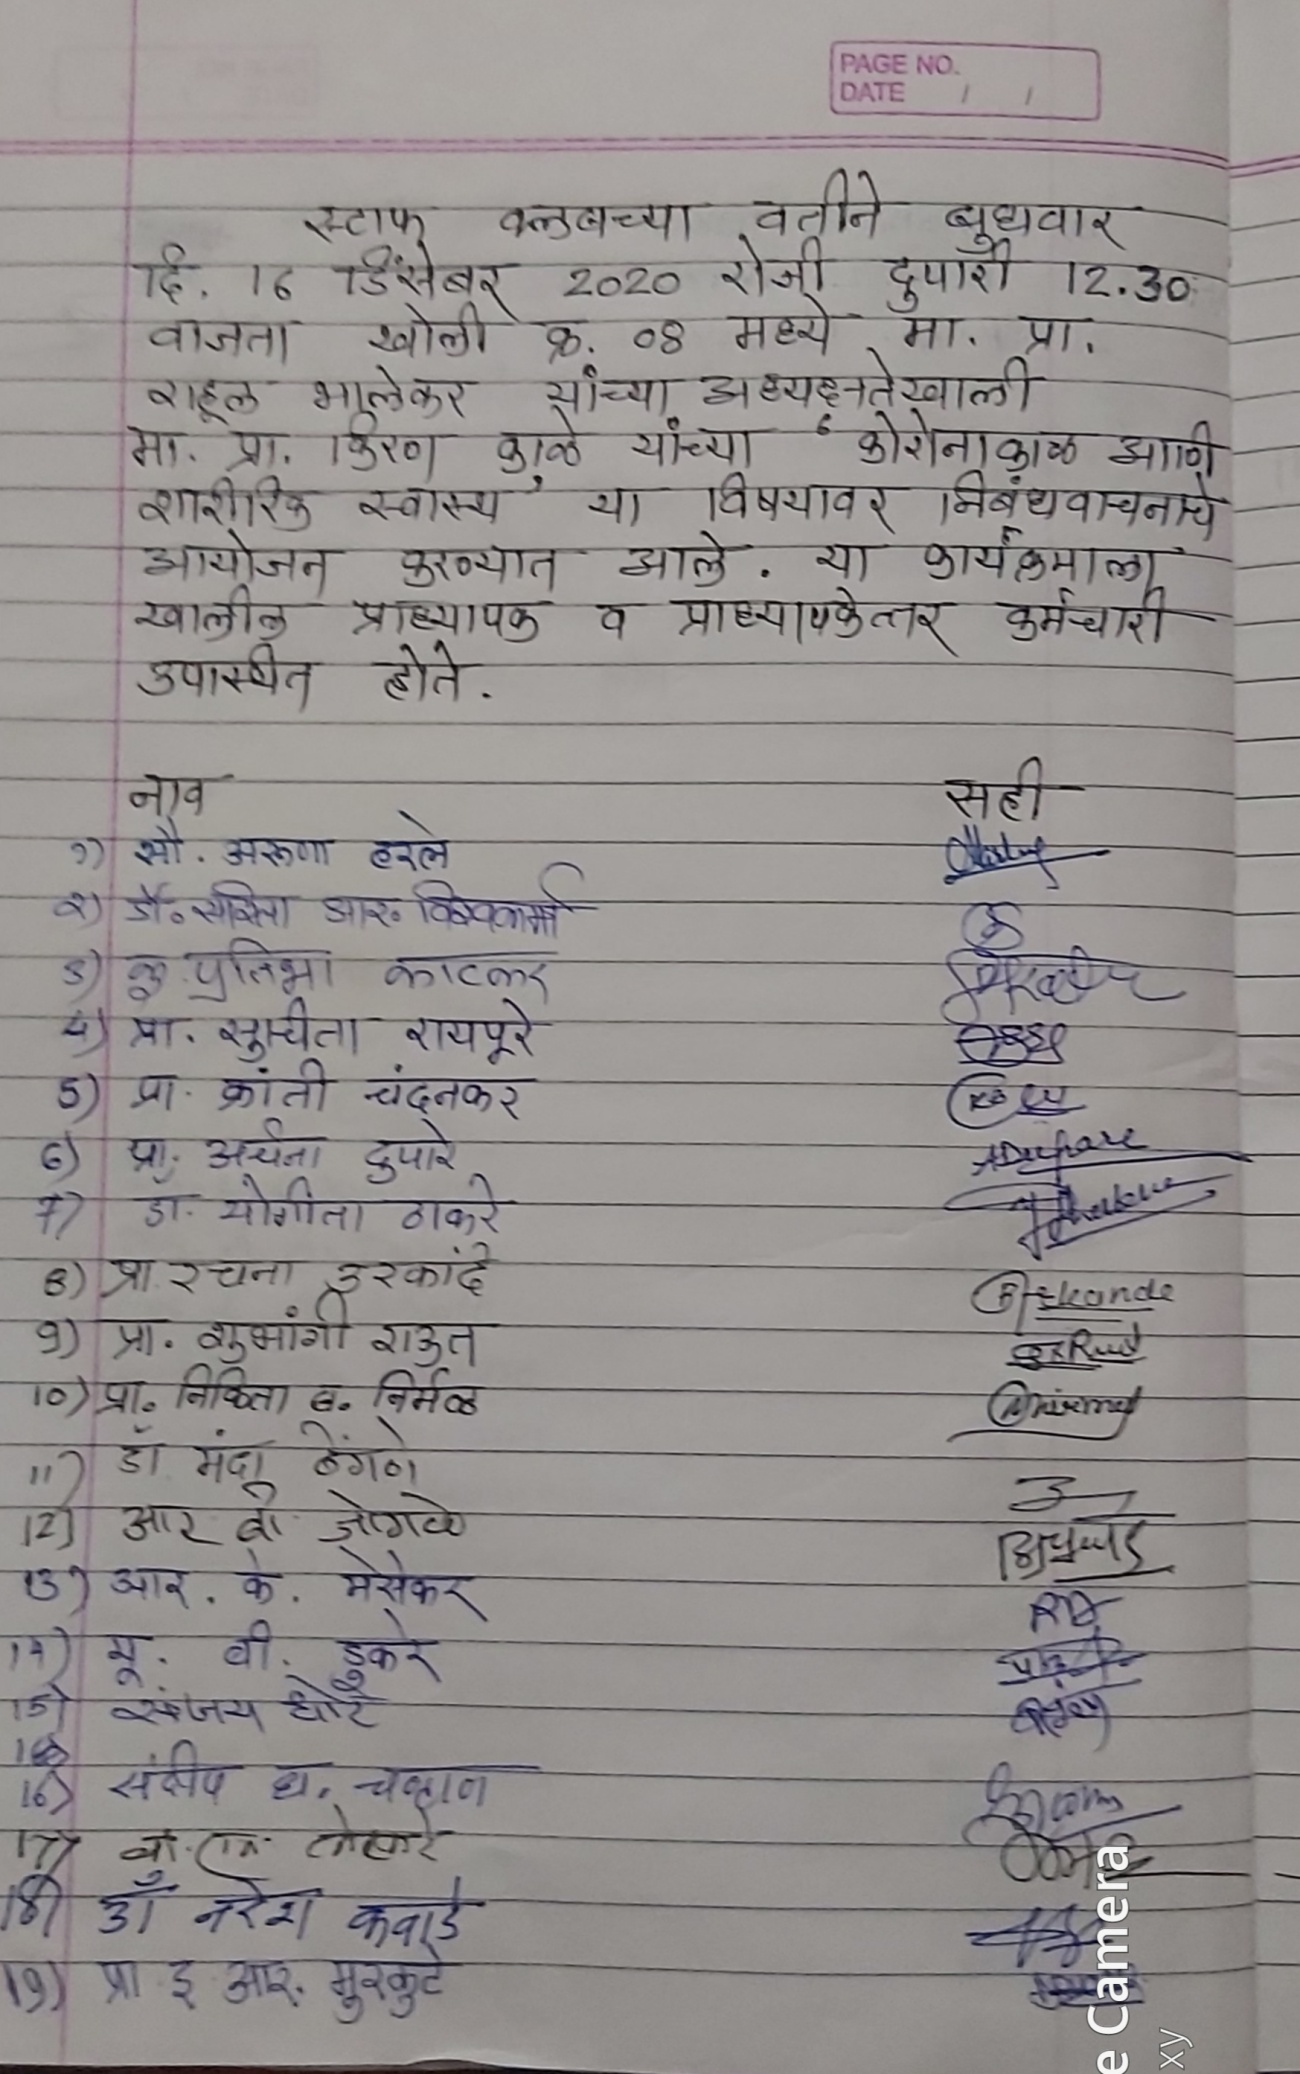 PAGE NO.
DATE / /
स्टाफ क्लबच्या वतीने बुधवार
दि. 16 डिसेंबर 2020 रोजी दुपारी 12.30
वाजता खोली क्र. 08 मध्ये मा. प्रा.
राहूल भालेकर यांच्या अध्यक्षतेखाली
मा. प्रा. किरण काळे यांच्या ' कोरोनाकाळ आणि
शारीरिक स्वास्थ्य ' या विषयावर निबंधवाचनाचे
आयोजन करण्यात आले. या कार्यक्रमाला
खालील प्राध्यापक व प्राध्यापकेत्तर कर्मचारी
उपस्थित होते.
नाव सही
१) सौ. अरूणा हरले
२) डॉ. सरिता आर. विश्वकर्मा
3) कु. प्रतिभा काटकर
4) प्रा. सुचीता रायपूरे
5) प्रा. क्रांती चंदनकर
6) प्रा. अर्चना दुपारे ADupare
7) डॉ. योगीता ठाकरे
8) प्रा. रचना उरकांदे
9) प्रा. शुभांगी राऊत
10) प्रा. निकिता ब. निर्मळ
11) डॉ. मंदा ठेंगणे
12) आर बी जोगळे
13) आर. के. मेसेकर
14) यू. वी. डुकरे
15) संजय धोटे
16) संदीप ध. चव्हाण
17)
18) डॉ नरेश कवाडे
19) प्रा इ आर. मुरकुटे
e Camera
xy